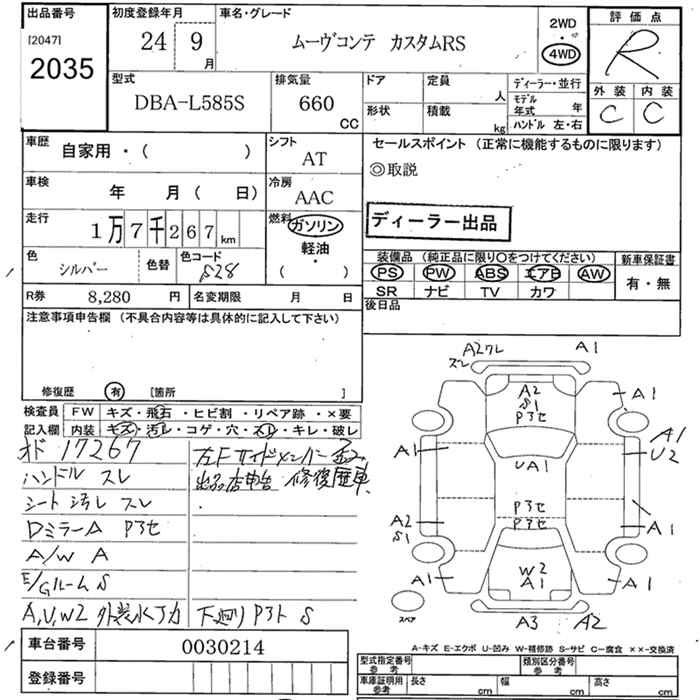 出品番号
[2047]
2035
初度登録年月
24 9 月
車名・グレード
ムーヴコンテ カスタムRS
2WD
・
4WD
評価点
R
外装 内装
C C
型式
DBA-L585S
排気量
660 CC
ドア
定員
人
ディーラー・並行
形状
積載
kg
モデル年式 年
ハンドル 左・右
車歴
自家用・( )
シフト
AT
セールスポイント (正常に機能するものに限ります)
◎取説
車検
年 月( 日)
冷房
AAC
走行
1万7千267km
燃料
ガソリン
軽油
・
( )
ディーラー出品
色
シルバー
色替
色コード
S28
装備品 (純正品に限り○をつけてください)
PS PW ABS エアB AW
SR ナビ TV カワ
新車保証書
有・無
R券 8,280 円
名変期限 月 日
後日品
注意事項申告欄 (不具合内容等は具体的に記入して下さい)
修復歴 有 [箇所 ]
検査員記入欄
FW キズ・飛石・ヒビ割・リペア跡・×要
内装 キズ・汚レ・コゲ・穴・スレ・キレ・破レ
オド 17267
ハンドル スレ
シート 汚レ スレ
DミラーA Pヨセ
A/W A
E/Gルーム S
A,U,W2 外装水アカ
左Fサイドメンバー
出品店申告 修復歴車
下廻り Pヨト S
A2ワレ
スレ
A1
A2
S1
Pヨセ
A1
A1
UA1
A1
U2
Pヨセ
Pヨセ
A2
S1
A1
A1
W2
A1
A1
スペア
A3
A2
車台番号
0030214
登録番号
A-キズ E-エクボ U-凹み W-補修跡 S-サビ C-腐食 ××-交換済
型式指定番号
参考
類別区分番号
参考
車庫証明用
参考
長さ cm
幅 cm
高さ cm